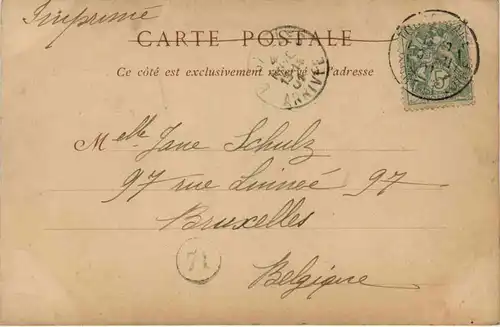 Imprimé
CARTE POSTALE
Ce côté est exclusivement réservé à l'adresse
ARRIVEE
5
Melle Jane Schulz
97 rue Linneé 97
Bruxelles
71
Belgique